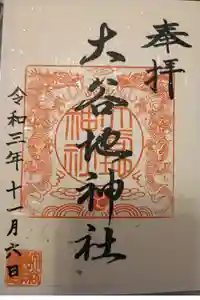 奉拝
大谷地神社
令和三年十一月六日